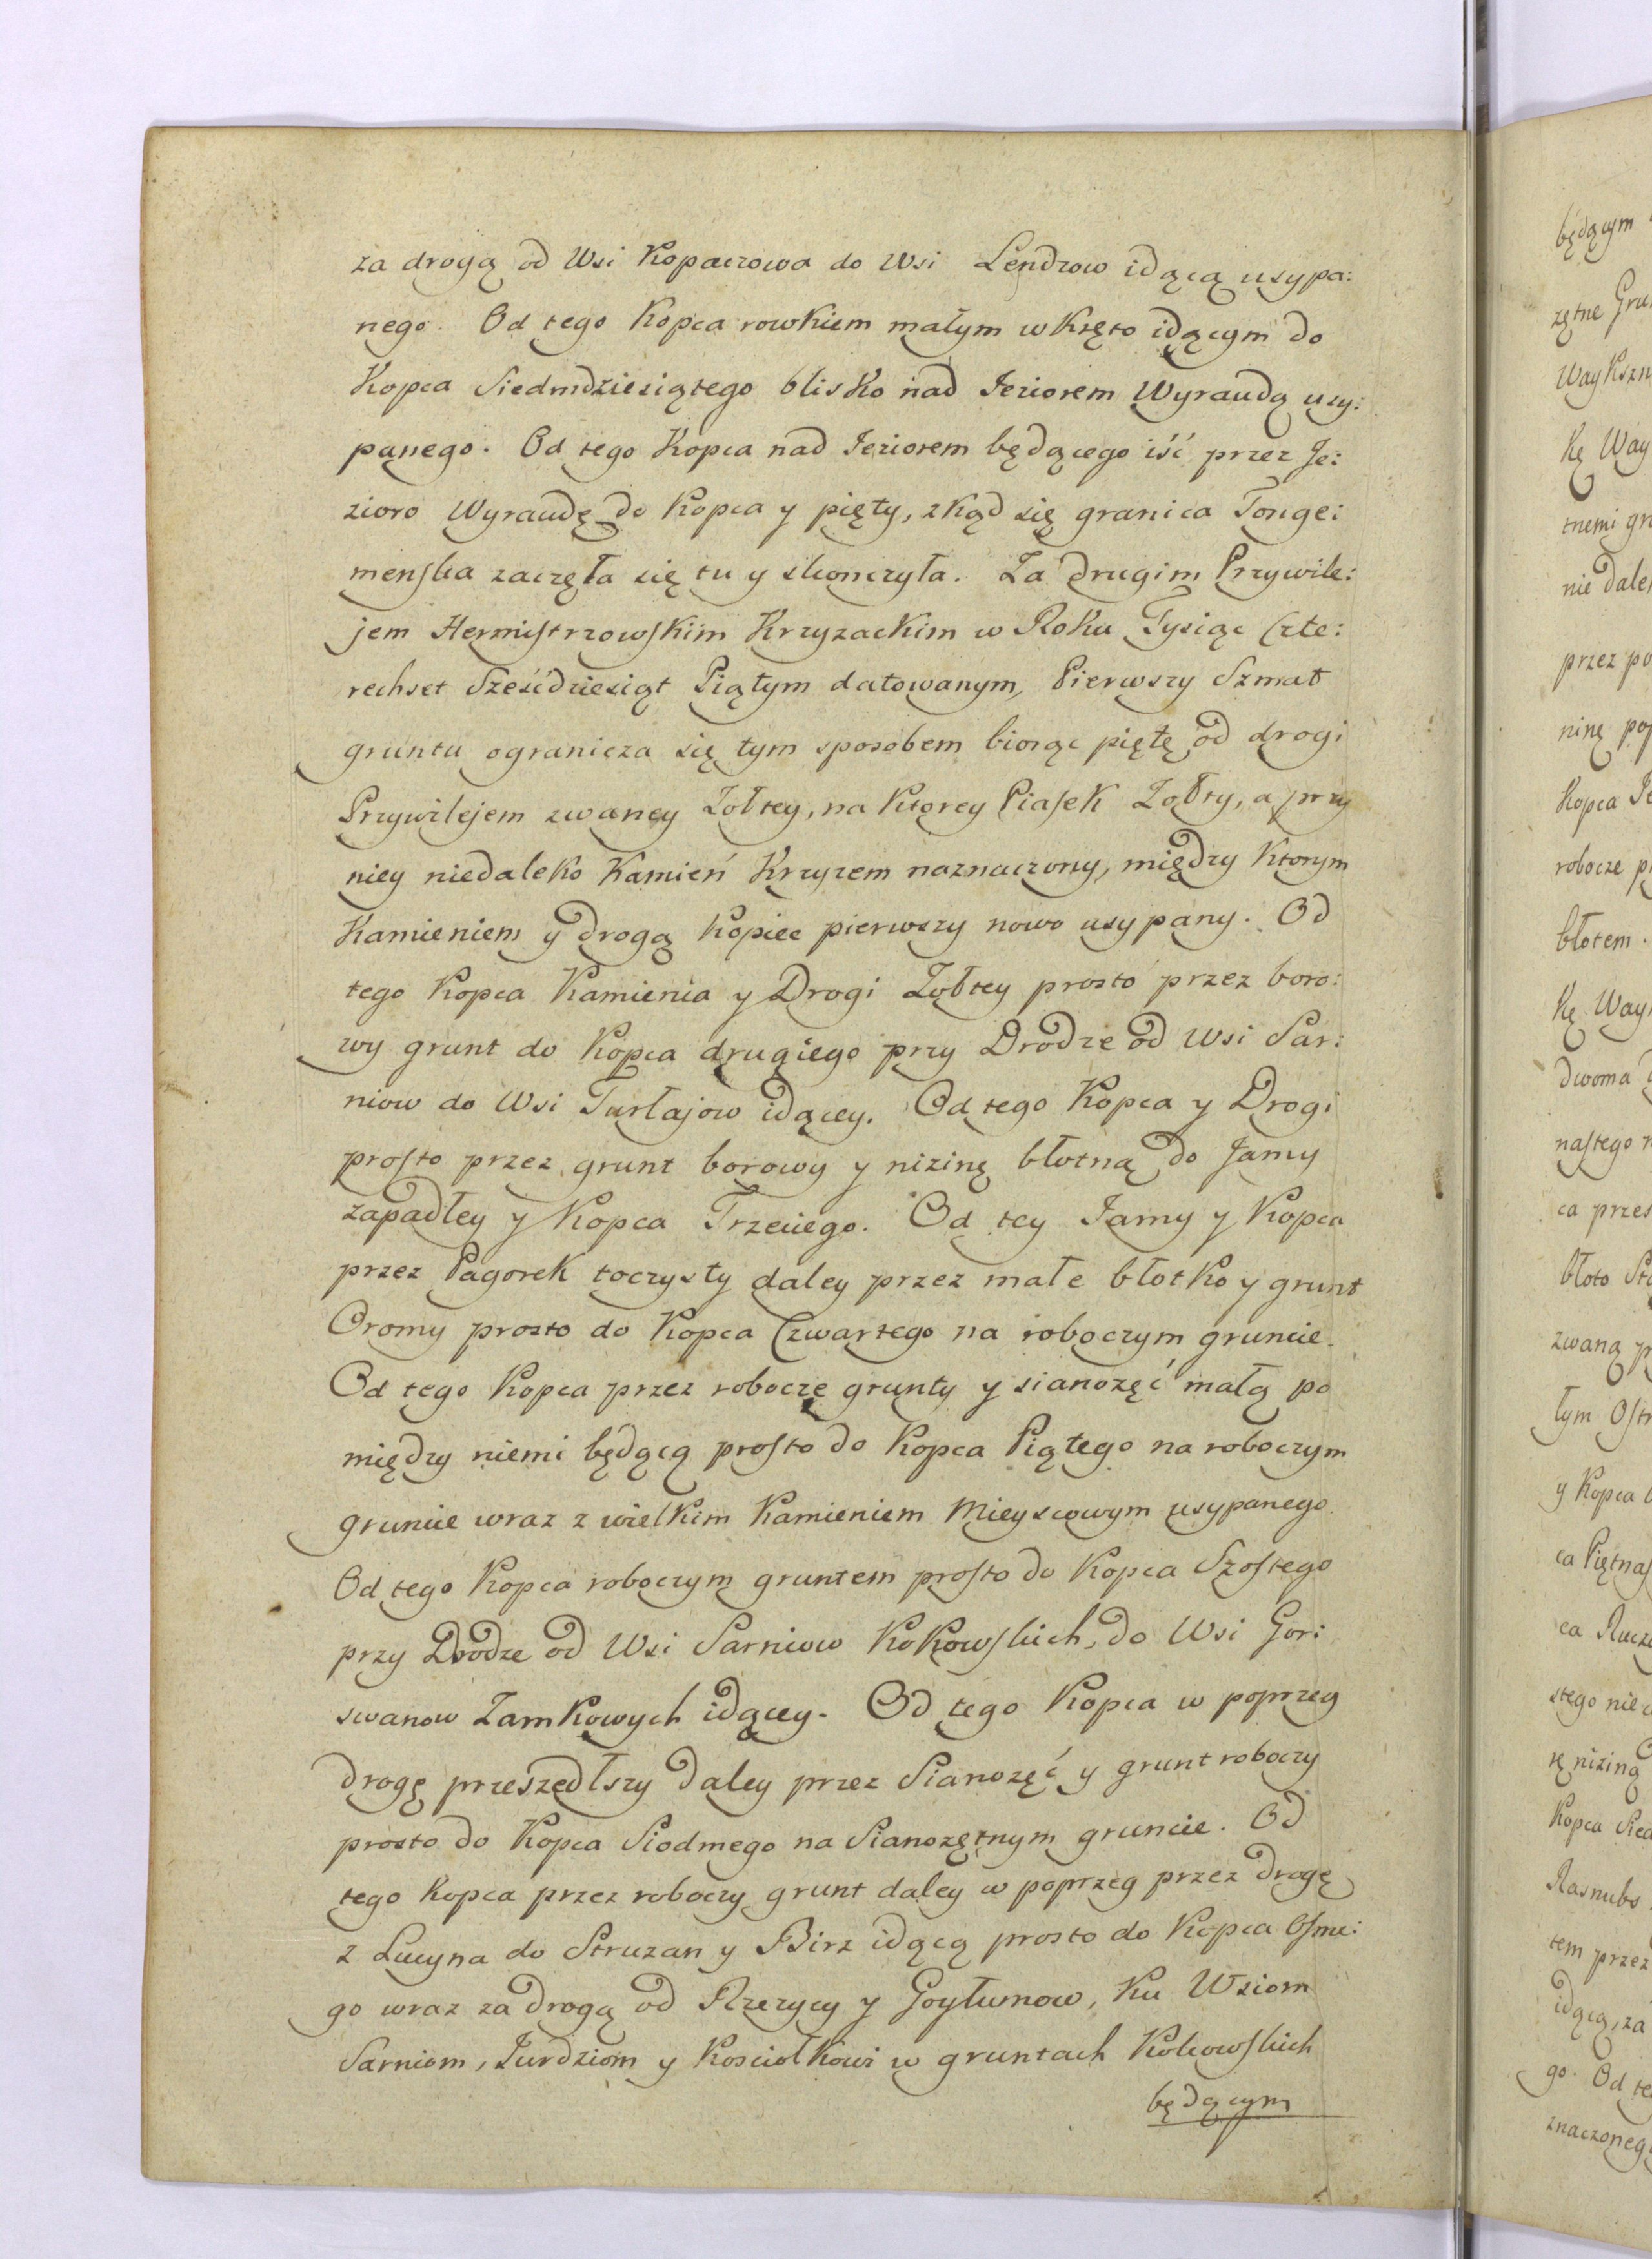 za drogą od Wsi Kopaczowa do Wsi Lendzow idącą usypa:
nego. Od tego Kopca rowkiem małym w Kręto idącym do
Kopca Siedmdziesiątego blisko nad Jeziorem Wyraudą usy:
panego. Od tego Kopca nad Jeziorem będącego iść przez Je:
zioro Wyraudę do Kopca y pięty, zkąd się granica Tonge:
menska zaczęła się tu y skonczyła. Za drugim Przywile:
jem Hermistrzowskim Krzyzackim w Roku Tysiąc Czte:
rechset Sześćdziesiąt Piątym datowanym, Pierwszy Szmat
gruntu ogranicza się tym sposobem biorąc piętę od drogi
Przywilejem zwaney Zołtey, na Ktorey Piasek Zołty, a przy
niey niedaleko Kamień Krzyzem naznaczony, między Ktorym
Kamieniem y drogą Kopiec pierwszy nowo usypany. Od
tego Kopca Kamienia y Drogi Zołtey prosto przez boro:
wy grunt do Kopca drugiego przy Drodze od Wsi Sar:
niow do Wsi Turłajow idącey. Od tego Kopca y Drogi
prosto przez grunt borowy y nizinę błotną do Jamy
zapadłey y Kopca Trzeciego. Od tey Jamy y Kopca
przez Pagorek toczysty daley przez małe błotko y grunt
Oromy prosto do Kopca Czwartego na roboczym gruncie.
Od tego Kopca przez robocze grunty y sianozęć małą po
między niemi będącą prosto do Kopca Piątego na roboczym
gruncie wraz z wielkim Kamieniem Mieyscowym usypanego.
Od tego Kopca roboczym gruntem prosto do Kopca Szostego
przy Drodze od Wsi Sarniow Kokowskich, do Wsi Gor:
swanow Zamkowych idącey. Od tego Kopca w poprzeg
drogę przeszedłszy daley przez Sianozęć y grunt roboczy
prosto do Kopca Siodmego na Sianozętnym gruncie. Od
tego Kopca przez roboczy grunt daley w poprzeg przez drogę
z Lucyna do Struzan y Birz idącą prosto do Kopca Osme:
go wraz za drogą od Rzezycy y Goyłumow, Ku Wsiom
Sarniom, Jurdziom y Kosciołkowi w gruntach Kokowskich
będącym
będącym
zętne
kę Way
tnemi
przez
ninę
Kopca
robocze
błotem.
kę Way
dwoma
nastego
ca
błoto
zwaną
łym
y Kopca
ca
ca
stego
Kopca
tem przez
idącą, za
go. Od